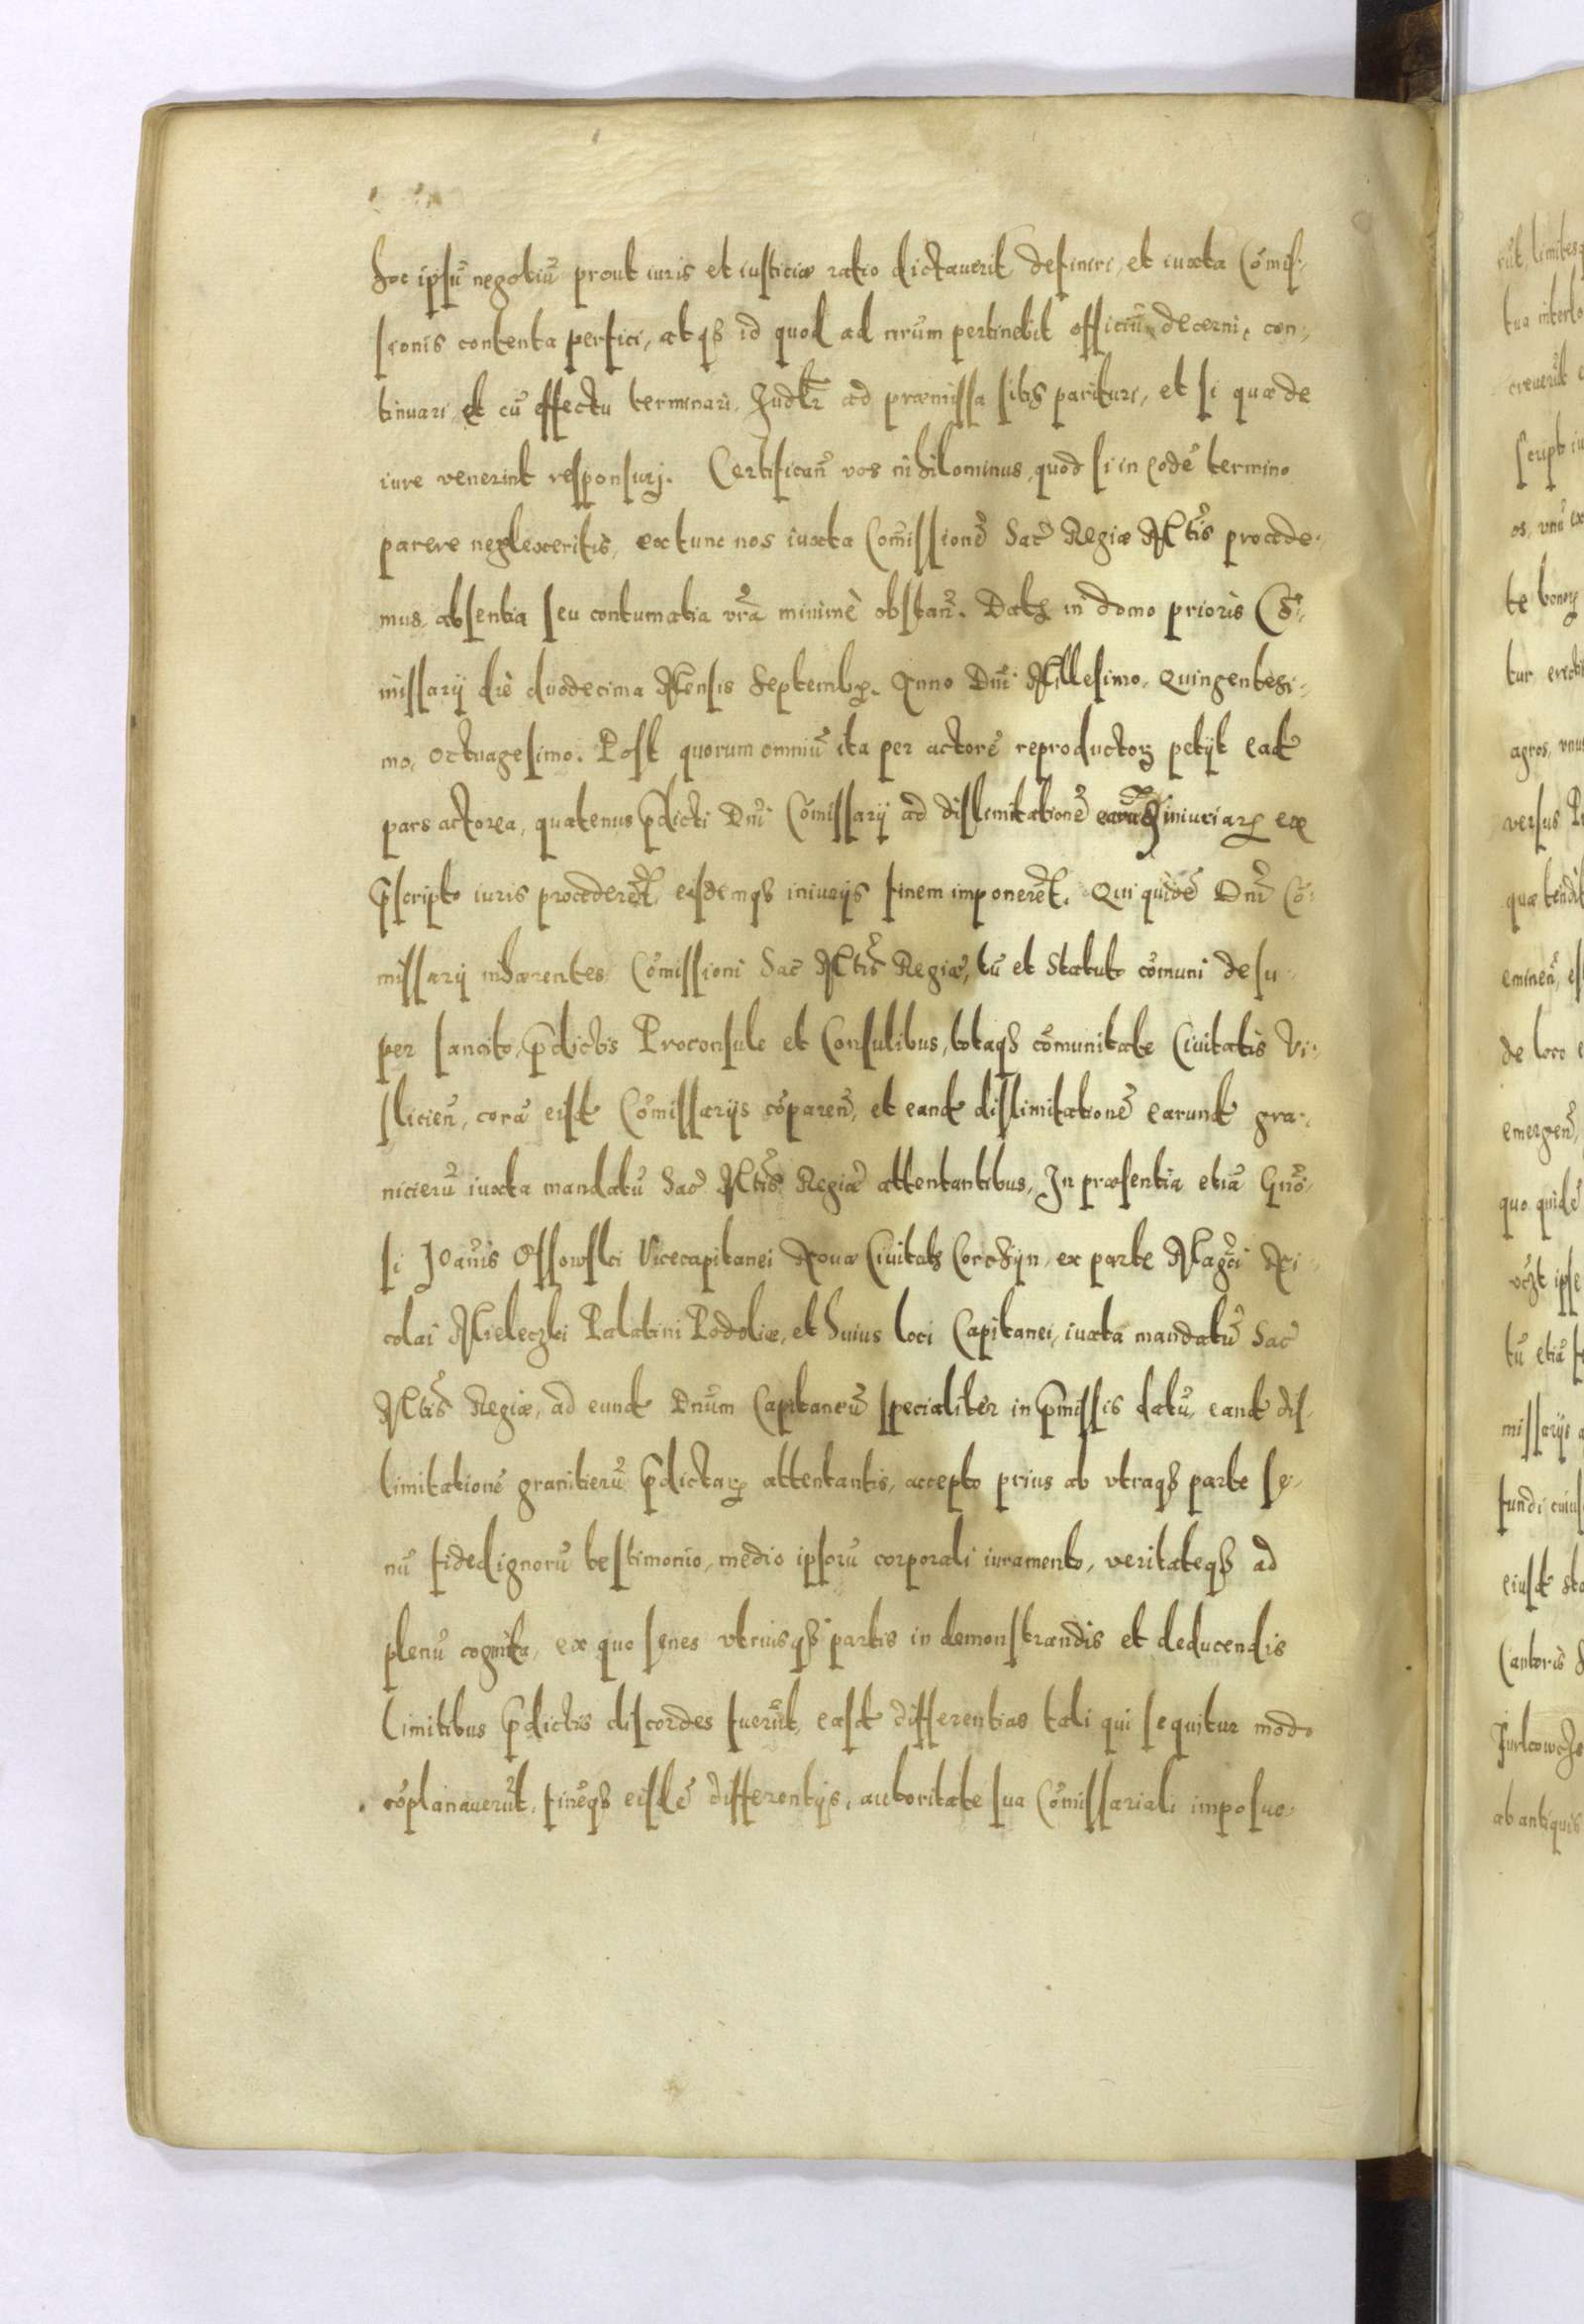 hoc ipsũ negotiũ prout iuris et iusticiæ ratio dictauerit definiri, et iuxta Cõmis-
sionis contenta perfici, atqꝫ id quod ad nr̃um pertinebit officiũ decerni, con-
tinuari, et cũ effectu terminari. Judr̃ ad præmissa sitis parituri, et si quæ de
iure venerint responsurj. Certifican̄ vos nihilominus, quod si in eodẽ termino
parere neglexeritis, extunc nos iuxta Com̃issionẽ Sac̃ Regiæ Mt̃is procede-
mus, absentia seu contumatia vr̃a minimè obstan̄. Datꝫ in domo prioris Cõ-
missarij die duodecima Mensis Septembꝝ. Anno Dnĩ Millesimo, Quingentesi-
mo, octuagesimo. Post quorum omniũ ita per actorẽ reproductoꝝ petijt ead̃
pars actorea, quatenus p̃dicti Dnĩ Cõmissarij ad dislimitationẽ iniuriaꝝ ex
p̃scripto iuris procederẽt, eisdemqꝫ iniurijs finem imponerẽt. Qui quidẽ Dnĩ Cõ-
missarij inhærentes Cõmissioni Sac̃ Mt̃is Regiæ, tũ et Statuto cõmuni desu-
per sancito, p̃dictis Proconsule et Consulibus, totaqꝫ cõmunitate Ciuitatis Vi-
slicien̄, corã eisd̃ Cõmissarijs cõparen̄, et eand̃ dislimitationẽ earund̃ gra-
nicierũ iuxta mandatũ Sac̃ Mt̃is Regiæ attentantibus, In præsentia etiã Gnõ-
si Joañis Ossowski Vicecapitanei Nouæ Ciuitatꝫ Corchijn, ex parte Magc̃i Ni-
colai Mieleczki Palatini Podoliæ, et huius loci Capitanei, iuxta mandatũ Sac̃
Mt̃is Regiæ, ad eund̃ Dnũm Capitaneũ specialiter in p̃missis datũ, eand̃ dis-
limitationẽ granitierũ p̃dictaꝝ attentantis, accepto prius ab vtraqꝫ parte se-
nũ fidedignorũ testimonio, medio ipsorũ corporali iuramento, veritateqꝫ ad
plenũ cognita, ex quo senes vtriusqꝫ partis in demonstrandis et deducendis
Limitibus p̃dictis discordes fuerũt, easd̃ differentias tali qui sequitur modo
cõplanauerũt, finẽqꝫ eisdẽ differentijs, autoritate sua Cõmissariali imposue-